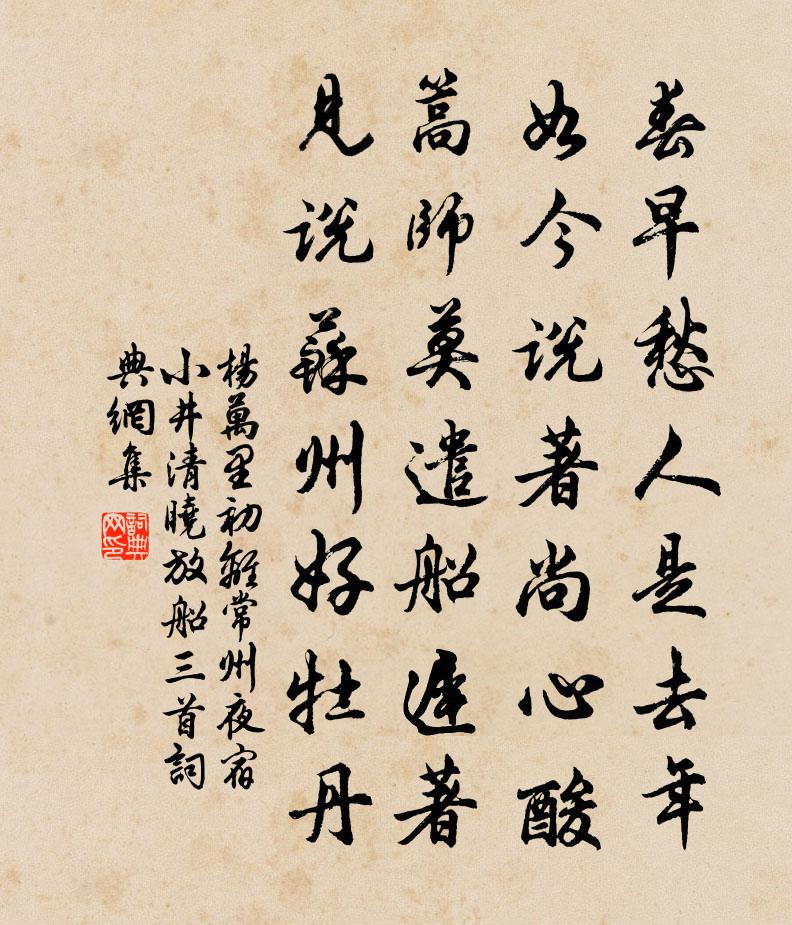 春早愁人是去年
如今説著尚心酸
篙師莫遣船遲著
見説蘇州好牡丹
楊萬里初離常州夜宿
小井清曉放船三首詞
典網集
詞典
网印